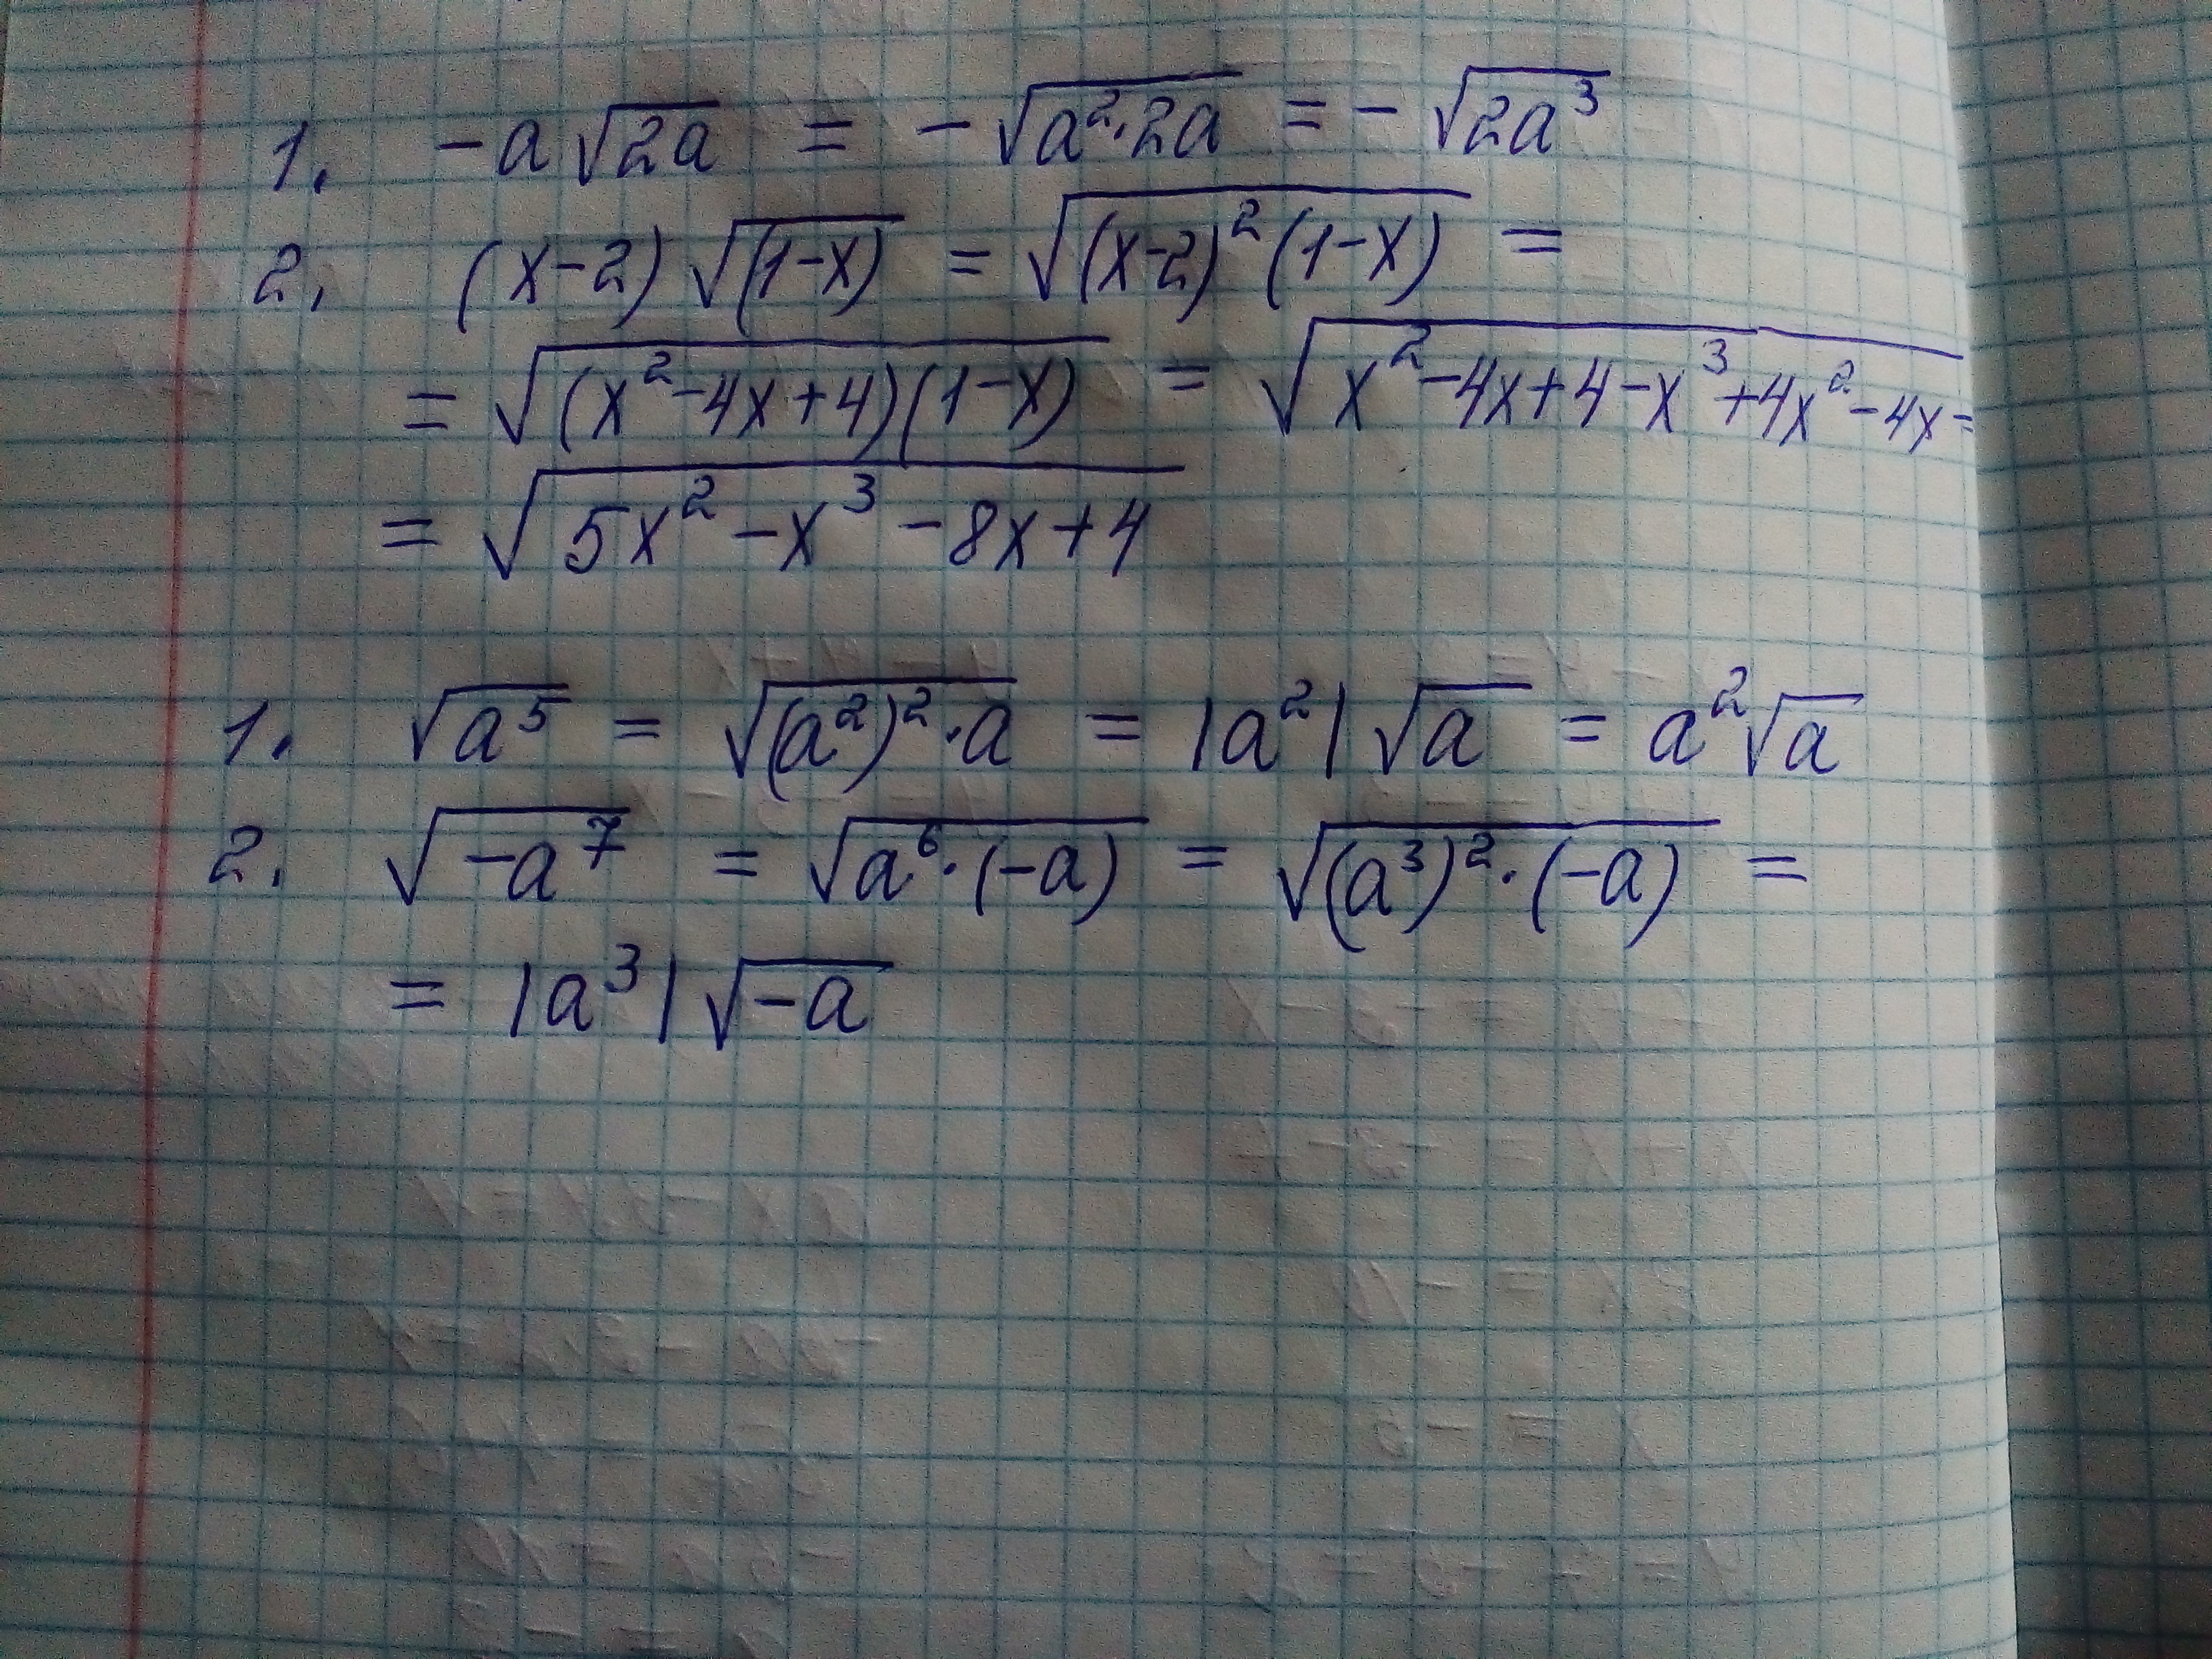 1. -a√(2a) = -√(a²·2a) = -√(2a³)
2. (x-2)√((1-x)) = √((x-2)²(1-x)) =
= √((x²-4x+4)(1-x)) = √(x²-4x+4-x³+4x²-4x =
= √(5x²-x³-8x+4)
1. √(a⁵) = √((a²)²·a) = |a²|√a = a²√a
2. √(-a⁷) = √(a⁶·(-a)) = √((a³)²·(-a)) =
= |a³|√(-a)